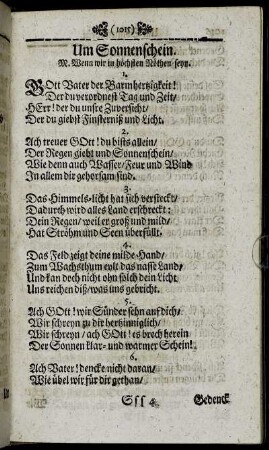 (1015)
Um Sonnenschein.
M. Wenn wir in höchsten Nöthen seyn.
1.
GOtt Vater der Barmhertzigkeit!
Der du verordnest Tag und Zeit/
HErr! der du unsre Zuversicht/
Der du giebst Finsterniß und Licht.
2.
Ach treuer GOtt! du bists allein/
Der Regen giebt und Sonnenschein/
Wie denn auch Wasser/Feur und Wind
In allem dir gehorsam sind.
3.
Das Himmels-licht hat sich versteckt/
Dadurch wird alles Land erschreckt:
Dein Regen/weil er groß und mild/
Hat Ströhm und Seen überfüllt.
4.
Das Feld zeigt deine milde-Hand/
Zum Wachsthum eylt das nasse Land/
Und kan doch nicht ohn solch dein Licht
Uns reichen diß/was uns gebricht.
5.
Ach GOtt! wir Sünder sehn auf dich/
Wir schreyn zu dir hertzinniglich/
Wir schreyn/ach GOtt! es brech herein
Der Sonnen klar- und warmer Schein!
6.
Ach Vater! dencke nicht daran/
Wie übel wir für dir gethan/
Sss 4 Gedenck